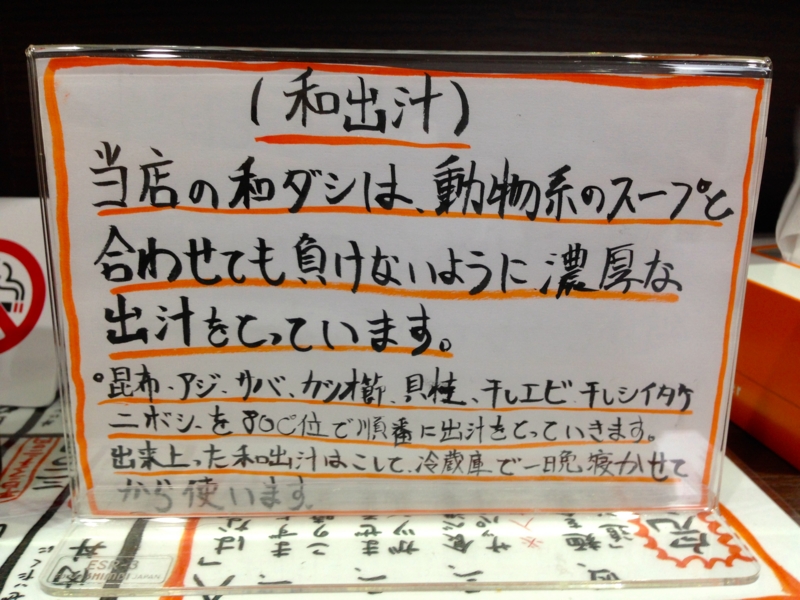 (和出汁)
当店の和ダシは、動物系のスープと
合わせても負けないように濃厚な
出汁をとっています。
。昆布、アジ、サバ、カツオ節、貝柱、干しエビ、干しシイタケ
ニボシーを80℃位で順番に出汁をとっていきます。
出来上った和出汁はこして、冷蔵庫で一晩寝かせて
から使います。